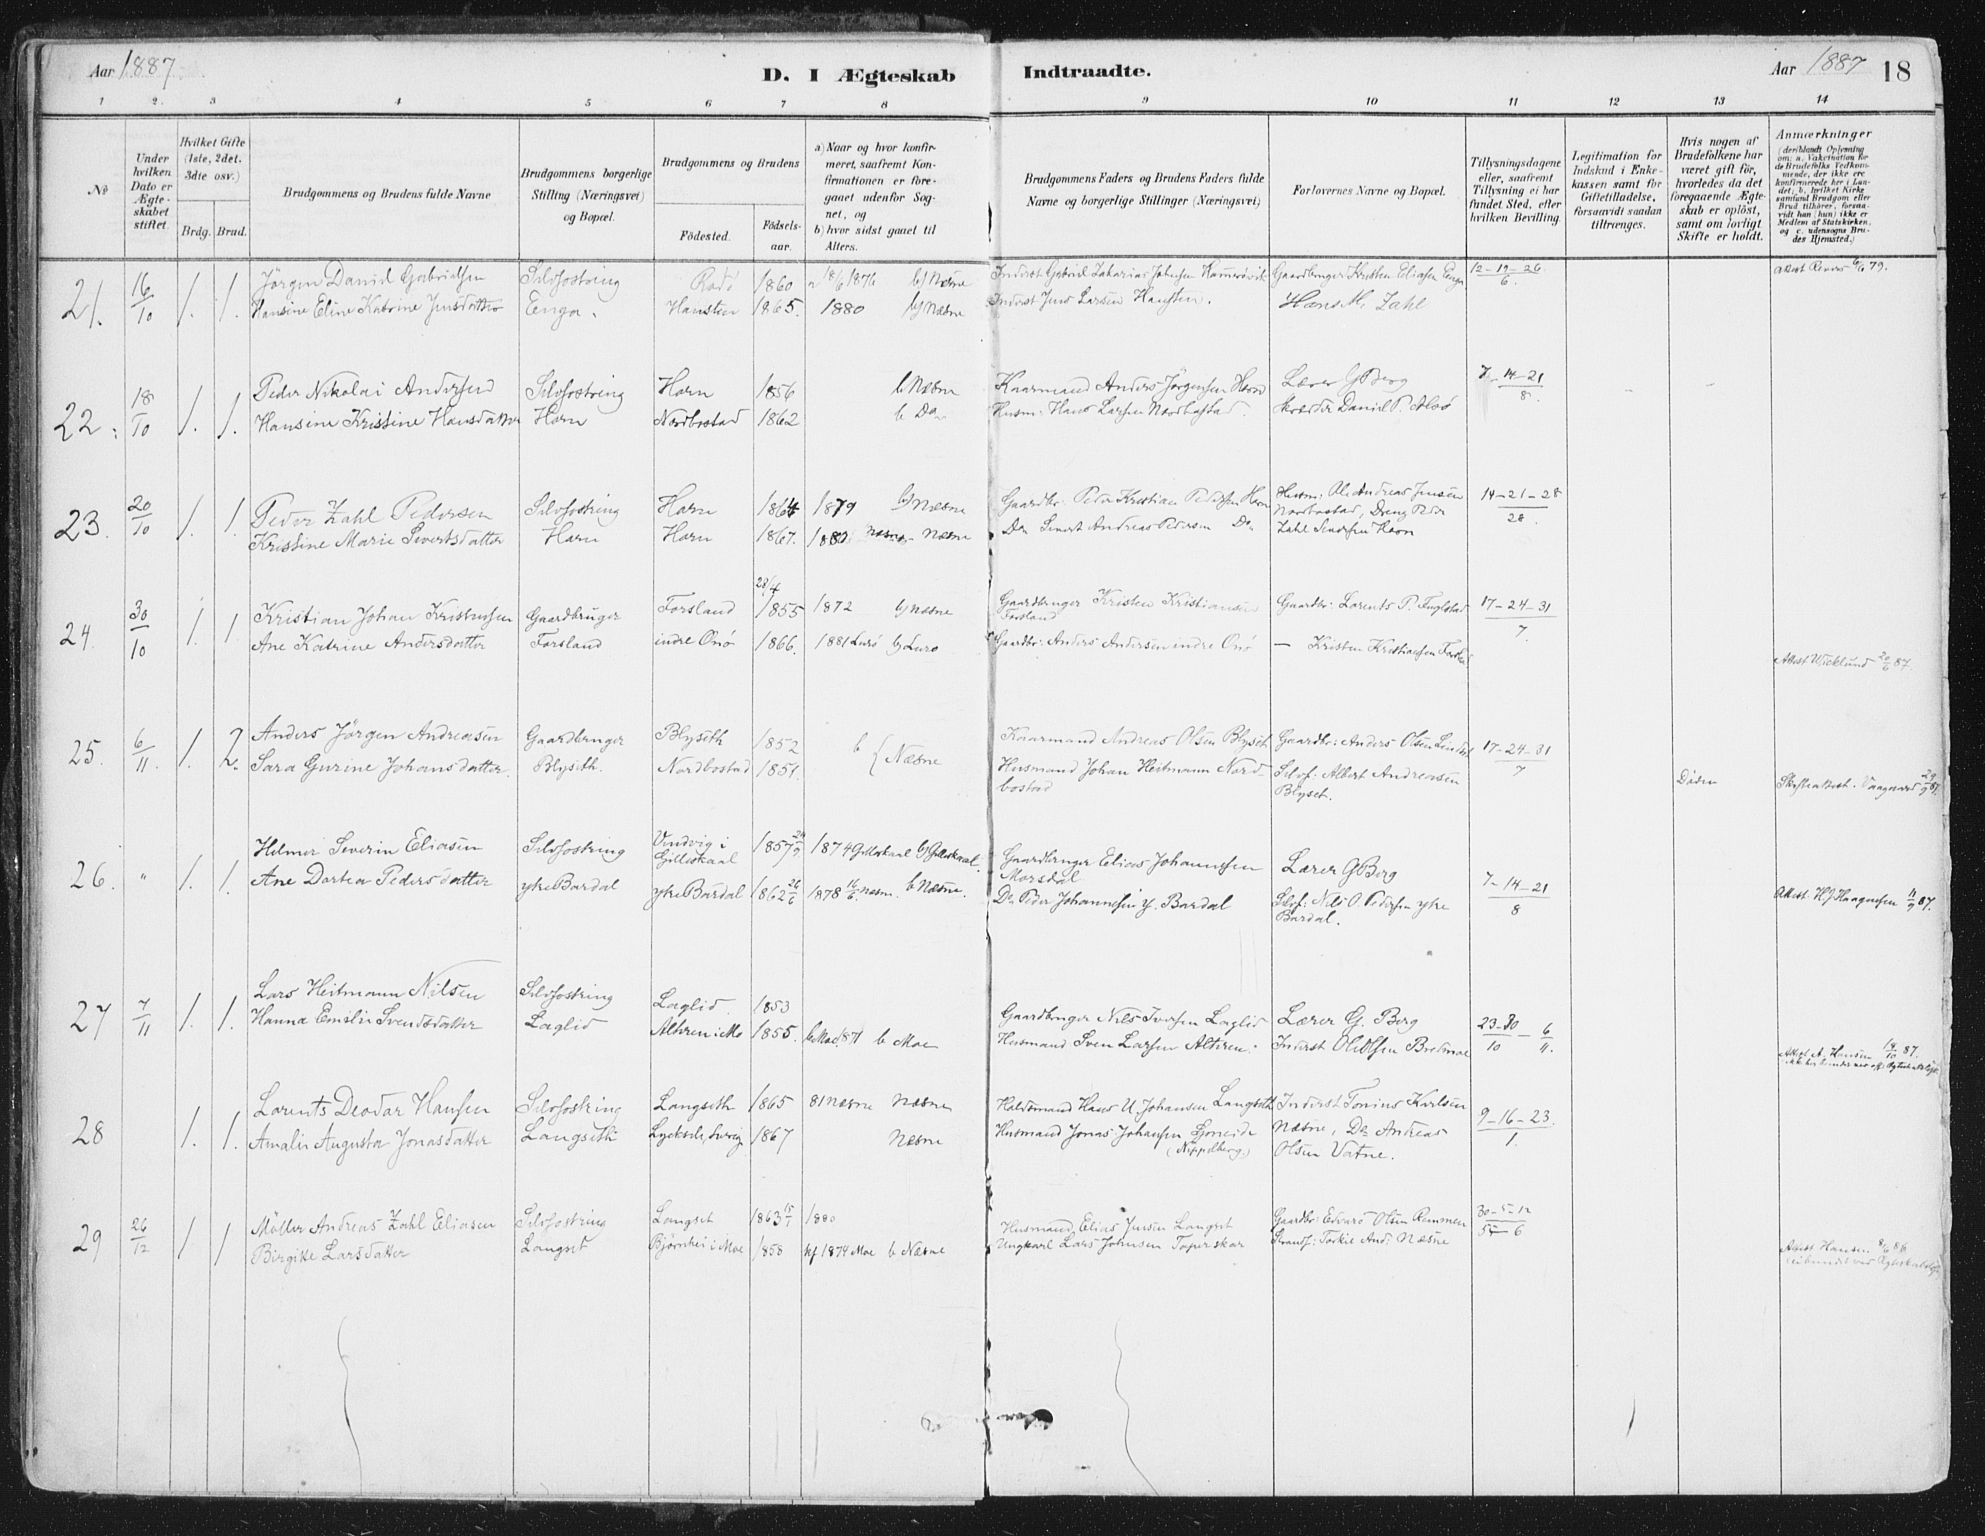 Aar 1887
D. I Ægteskab
Indtraadte.
Aar 1887 18
1 2. 3 4 5 6 7 8 9 10 11 12 13 14
No
Under hvilken Dato er Ægteskabet stiftet.
Hvilket Gifte (1ste, 2det. 3die osv.)
Brdg. Brud.
Brudgommens og Brudens fulde Navne
Brudgommens borgerlige Stilling (Næringsvei) og Bopæl.
Brudgommens og Brudens
Födested.
Födselsaar.
a) Naar og hvor konfirmeret, saafremt Konfirmationen er foregaaet udenfor Sognet, og
b) hvor sidst gaaet til Alters.
Brudgommens Faders og Brudens Faders fulde Navne og borgerlige Stillinger (Næringsvei)
Forlovernes Navne og Bopæl.
Tillysningsdagene eller, saafremt Tillysning ei har fundet Sted, efter hvilken Bevilling.
Legitimation for Indskud i Enkekassen samt for Giftetilladelse, forsaavidt saadan tiltrænges.
Hvis nogen af Brudefolkene har været gift för, hvorledes da det foregaaende Ægteskab er oplöst, samt om lovligt Skifte er holdt.
Anmærkninger (deriblandt Oplysning om: a. Vakcination for de Brudefolks Vedkommende, der ikke ere konfirmerede her i Landet; b. hvilket Kirkesamfund Brudgom eller Brud tilhörer, forsaavidt han (hun) ikke er Medlem af Statskirken, og c. udensogns Brudes Hjemsted.)
21. 16/10 1. 1. Jörgen Daniel Gabrielsen Selvfostring Rødø 1860 a 18/6 1876 b) Næsne Inderst Gabriel Zakarias Johnsen Gaardbruger Kristen Eliasen Enga 12-19-26/6.
Hansine Eline Katrine Jensdatter Enga. Hansten 1865. 1880 b) Næsne Inderst Jens Larsen Hansten. Hans M. Zahl
22. 18/10 1. 1. Peder Nikolai Andersen Selvfostring Horn 1856 b Næsne Kaarmand Anders Jørgensen Horn Lærer G Berg 7-14-21/8.
Hansine Kristine Hansdatter Horn Nordbostad 1862 b Do Husm: Hans Larsen Nordbostad. Daniel P.
23. 20/10 1. 1. Peder Zahl Pedersen Selvfostring Horn 1864 1879 b) Næsne Gaardbr. Peder Kristian Pedersen Horn Husm: Ole Andreas Jensen 14-21-28/28.
Nordbostad, Dreng Peder
Kristine Marie Sivertsdatter Horn Horn 1867. Næsne Næsne Do Sivert Andreas Pedersen Do Zahl Horn
24. 30/10 1. 1. Kristian Johan Kristensen Gaardbruger Forsland 28/4 1855 1872 b) Næsne Gaardbruger Kristen Kristiansen Forsland Gaardbr: Lorents P. Fuglstad 17-24-31/7.
Ane Katrine Andersdatter Forsland indre Onø 1866. 1881 Lurø b) Lurø Gaardbr: Anders Andersen indre Onø — Kristen Kristiansen
Attest Wicklund 20/6 87.
25. 6/11. 1. 2. Anders Jörgen Andreasen Gaardbruger Blyseth 1852 b { Næsne Kaarmand Andreas Olsen Blyset Gaardbr: Anders Olsen 17-24-31/7
Sara Gurine Johansdatter. Blyseth. Nordbostad 1851. Husmand Johan Heitmann Nordbostad Selvf: Albert Andreasen Blyset. Døden Skifteattest. 29/9 87.
26. " 1. 1. Helmer Severin Eliasen Selvfostring Vindvig i Gilleskaal 1857 24/9 1874 Gilleskaal b) Gilleskaal. Gaardbruger Elias Johannesen Morsdal Lærer G Berg 7-14-21/8
Ane Dortea Pedersdatter ytre Bardal ytre Bardal 1862 26/6 1878 16/6. Næsn. b Næsne. Do Peder Johannesen y. Bardal Selvf: Nils O. Pedersen ytre Bardal. Attest. H J Haagensen 11/9 87.
27 7/11 1. 1. Lars Heitmann Nilsen Selvfostring Laglid. 1853 Gaardbruger Nils Iversen Laglid Lærer G. Berg 23-30/10 - 6/11.
Hanna Emelie Svendsdatter Laglid Altren i Mo 1855. b Moe 1871 b Moe Husmand Sven Larsen Altren. Inderst Ole Olsen Bredmoe
Attest A. Hansen 18/10 87.
28 1. 1. Lorents Deodar Hansen Selvfostring Langseth 1865 81 Næsne Næsne Holdsmand Hans U. Johansen Langseth Inderst Tonius Karlsen 9-16-23./1.
Amalie Augusta Jonasdatter Langseth Lycksele, Sverig 1867 Næsne Husmand Jonas Johansen (Nippelberg) Næsne, Do Andreas Olsen Vatne.
29 26/12 1 1 Möller Andreas Zahl Eliasen Selvfostring Langset 1863 15/1 1880 Husmand Elias Jensen Langset Gaardbr: Edvard Olsen Remmen 30-5-12/5-6
Birgitte Larsdatter Langset Bjørnhei i Moe 1858 kf 1874 Moe b Næsne Ungkarl Lars Johnsen Toperskar Strands: And: Næsne
Attest Hansen 8/6 86